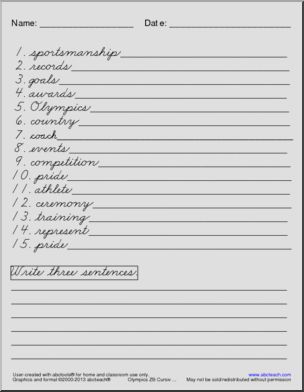 Name: ____________________ Date: ____________________
1. sportsmanship
2. records
3. goals
4. awards
5. Olympics
6. country
7. coach
8. events
9. competition
10. pride
11. athlete
12. ceremony
13. training
14. represent
15. pride
Write three sentences.
User-created with abctools® for home and classroom use only. www.abcteach.com
Graphics and format ©2000-2013 abcteach® Olympics ZB Cursiv ... May not be sold/redistributed without permission.